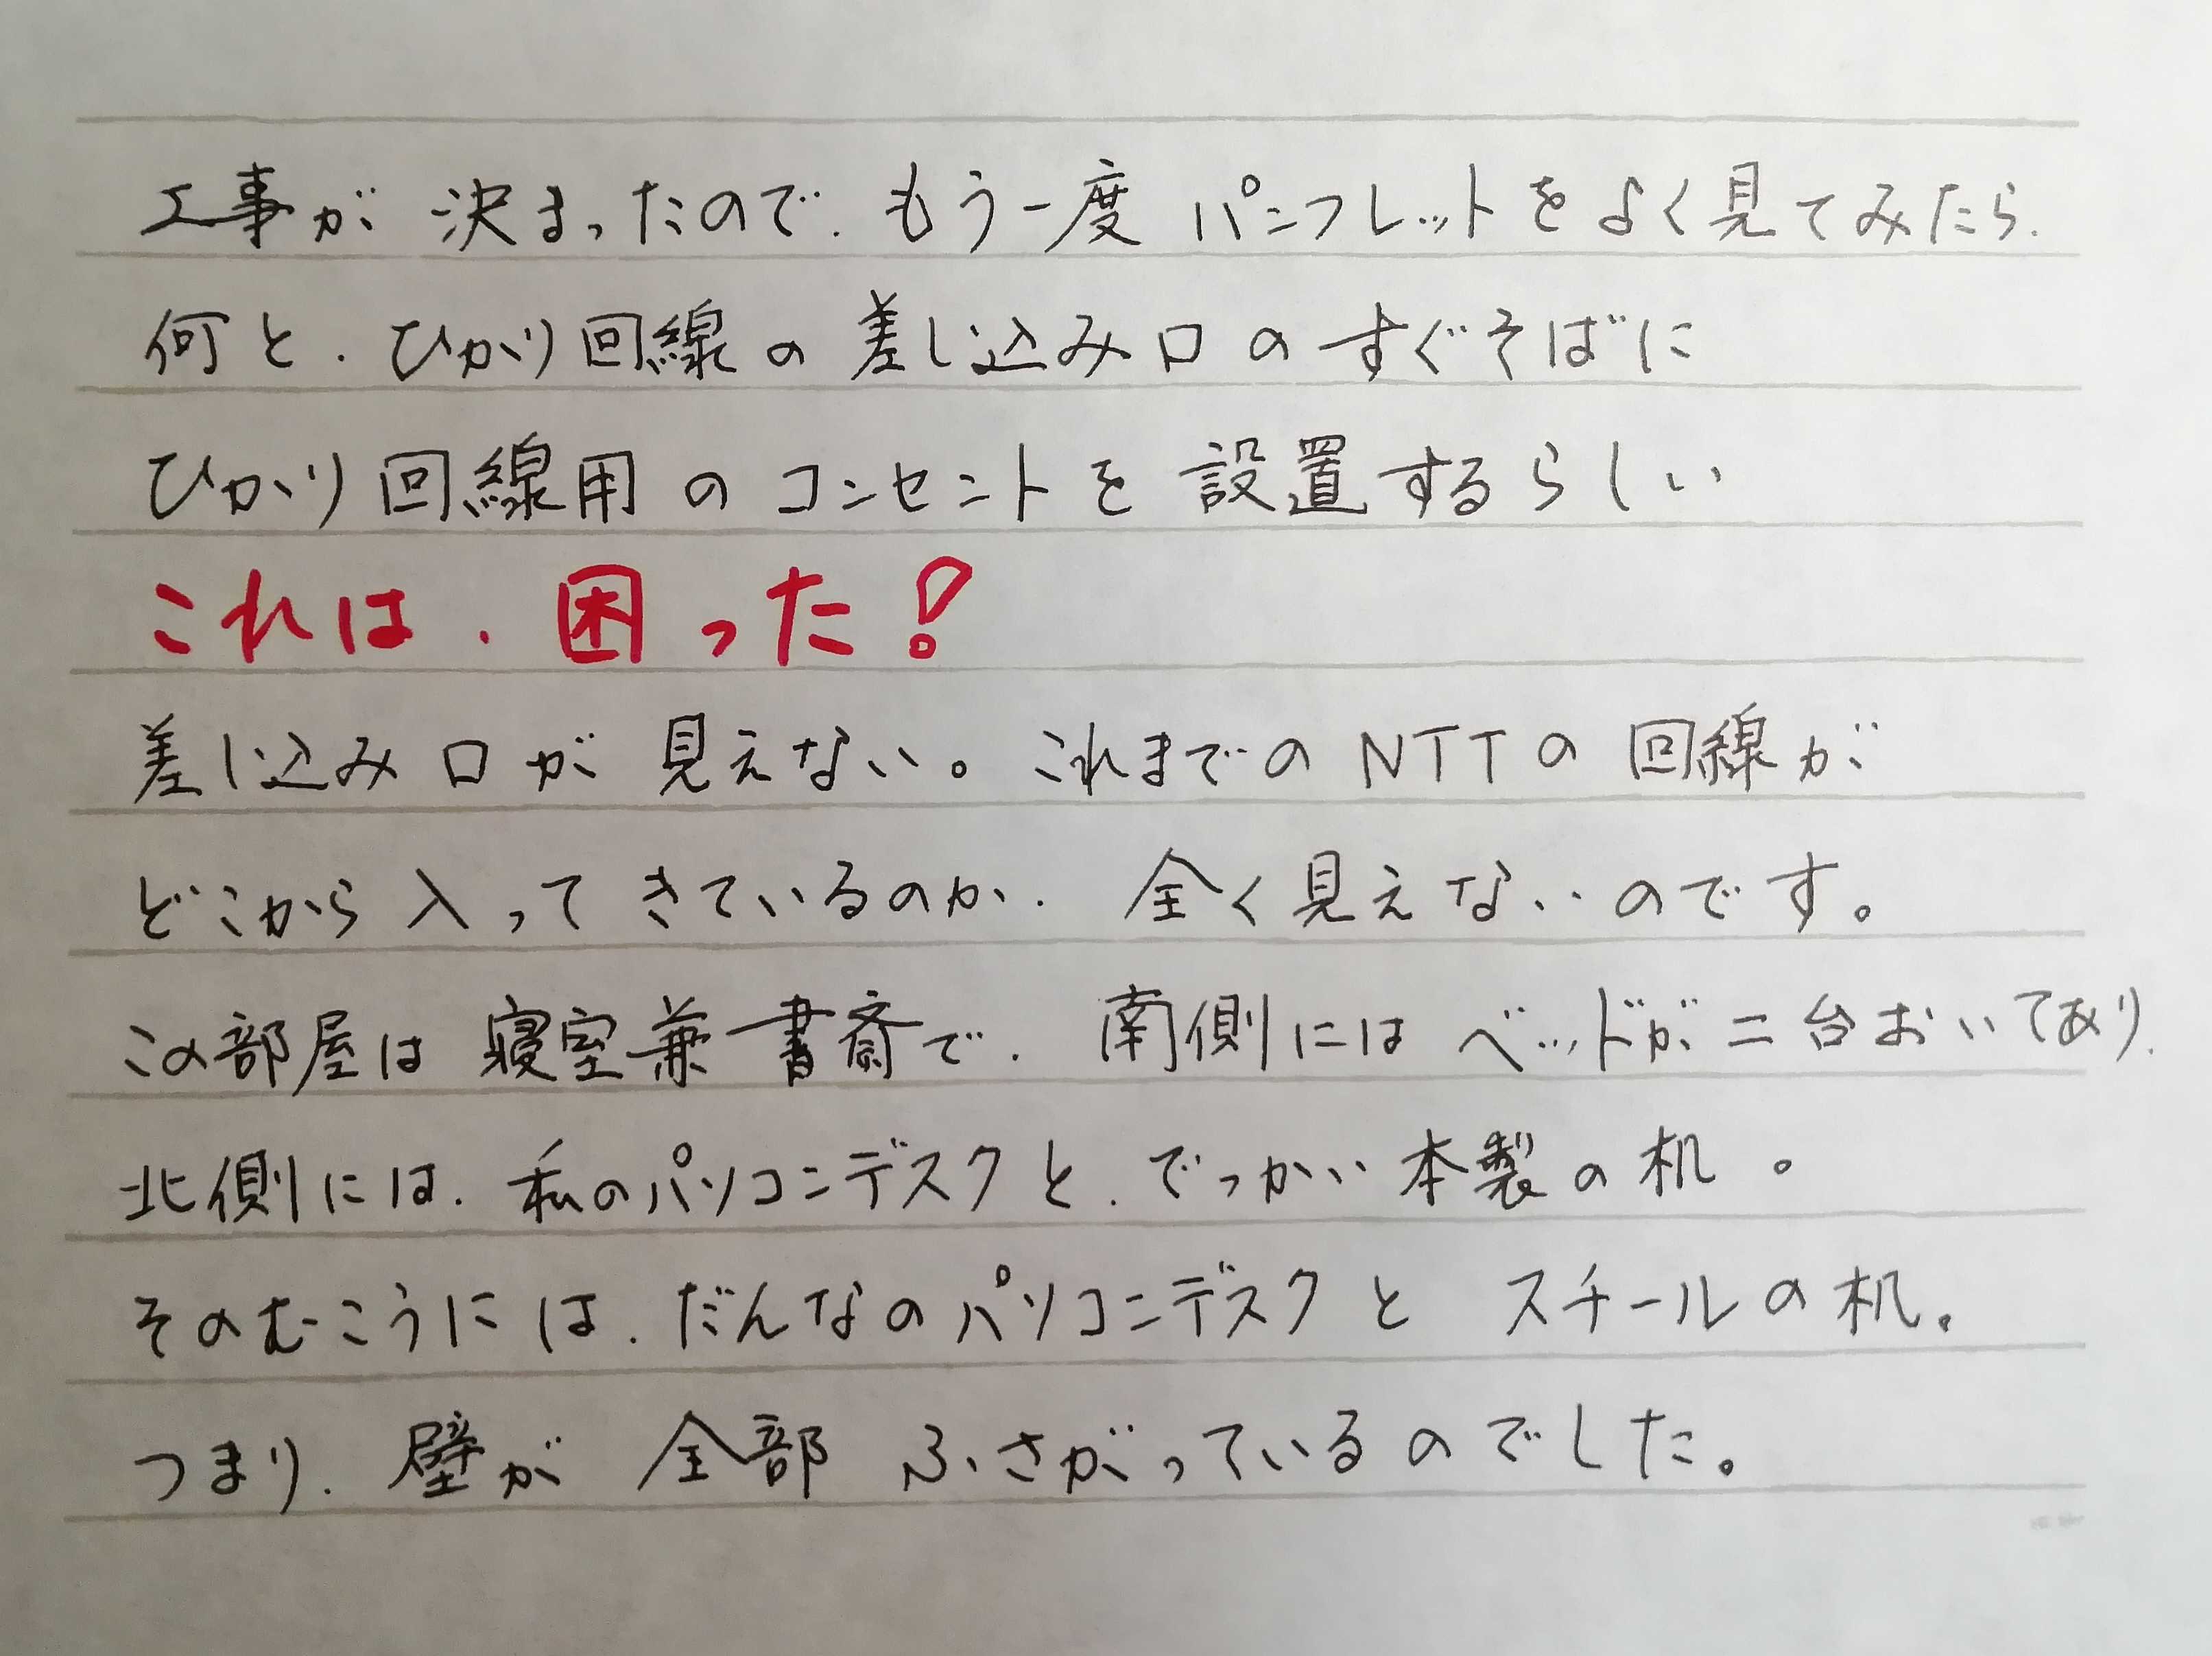 工事が決まったので、もう一度パンフレットをよく見てみたら、
何と、ひかり回線の差し込み口のすぐそばに
ひかり回線用のコンセントを設置するらしい
これは、困った!
差し込み口が見えない。これまでのNTTの回線が
どこから入ってきているのか、全く見えないのです。
この部屋は寝室兼書斎で、南側にはベッドが二台おいてあり、
北側には、私のパソコンデスクと、でっかい木製の机。
そのむこうには、だんなのパソコンデスクとスチールの机。
つまり、壁が全部ふさがっているのでした。